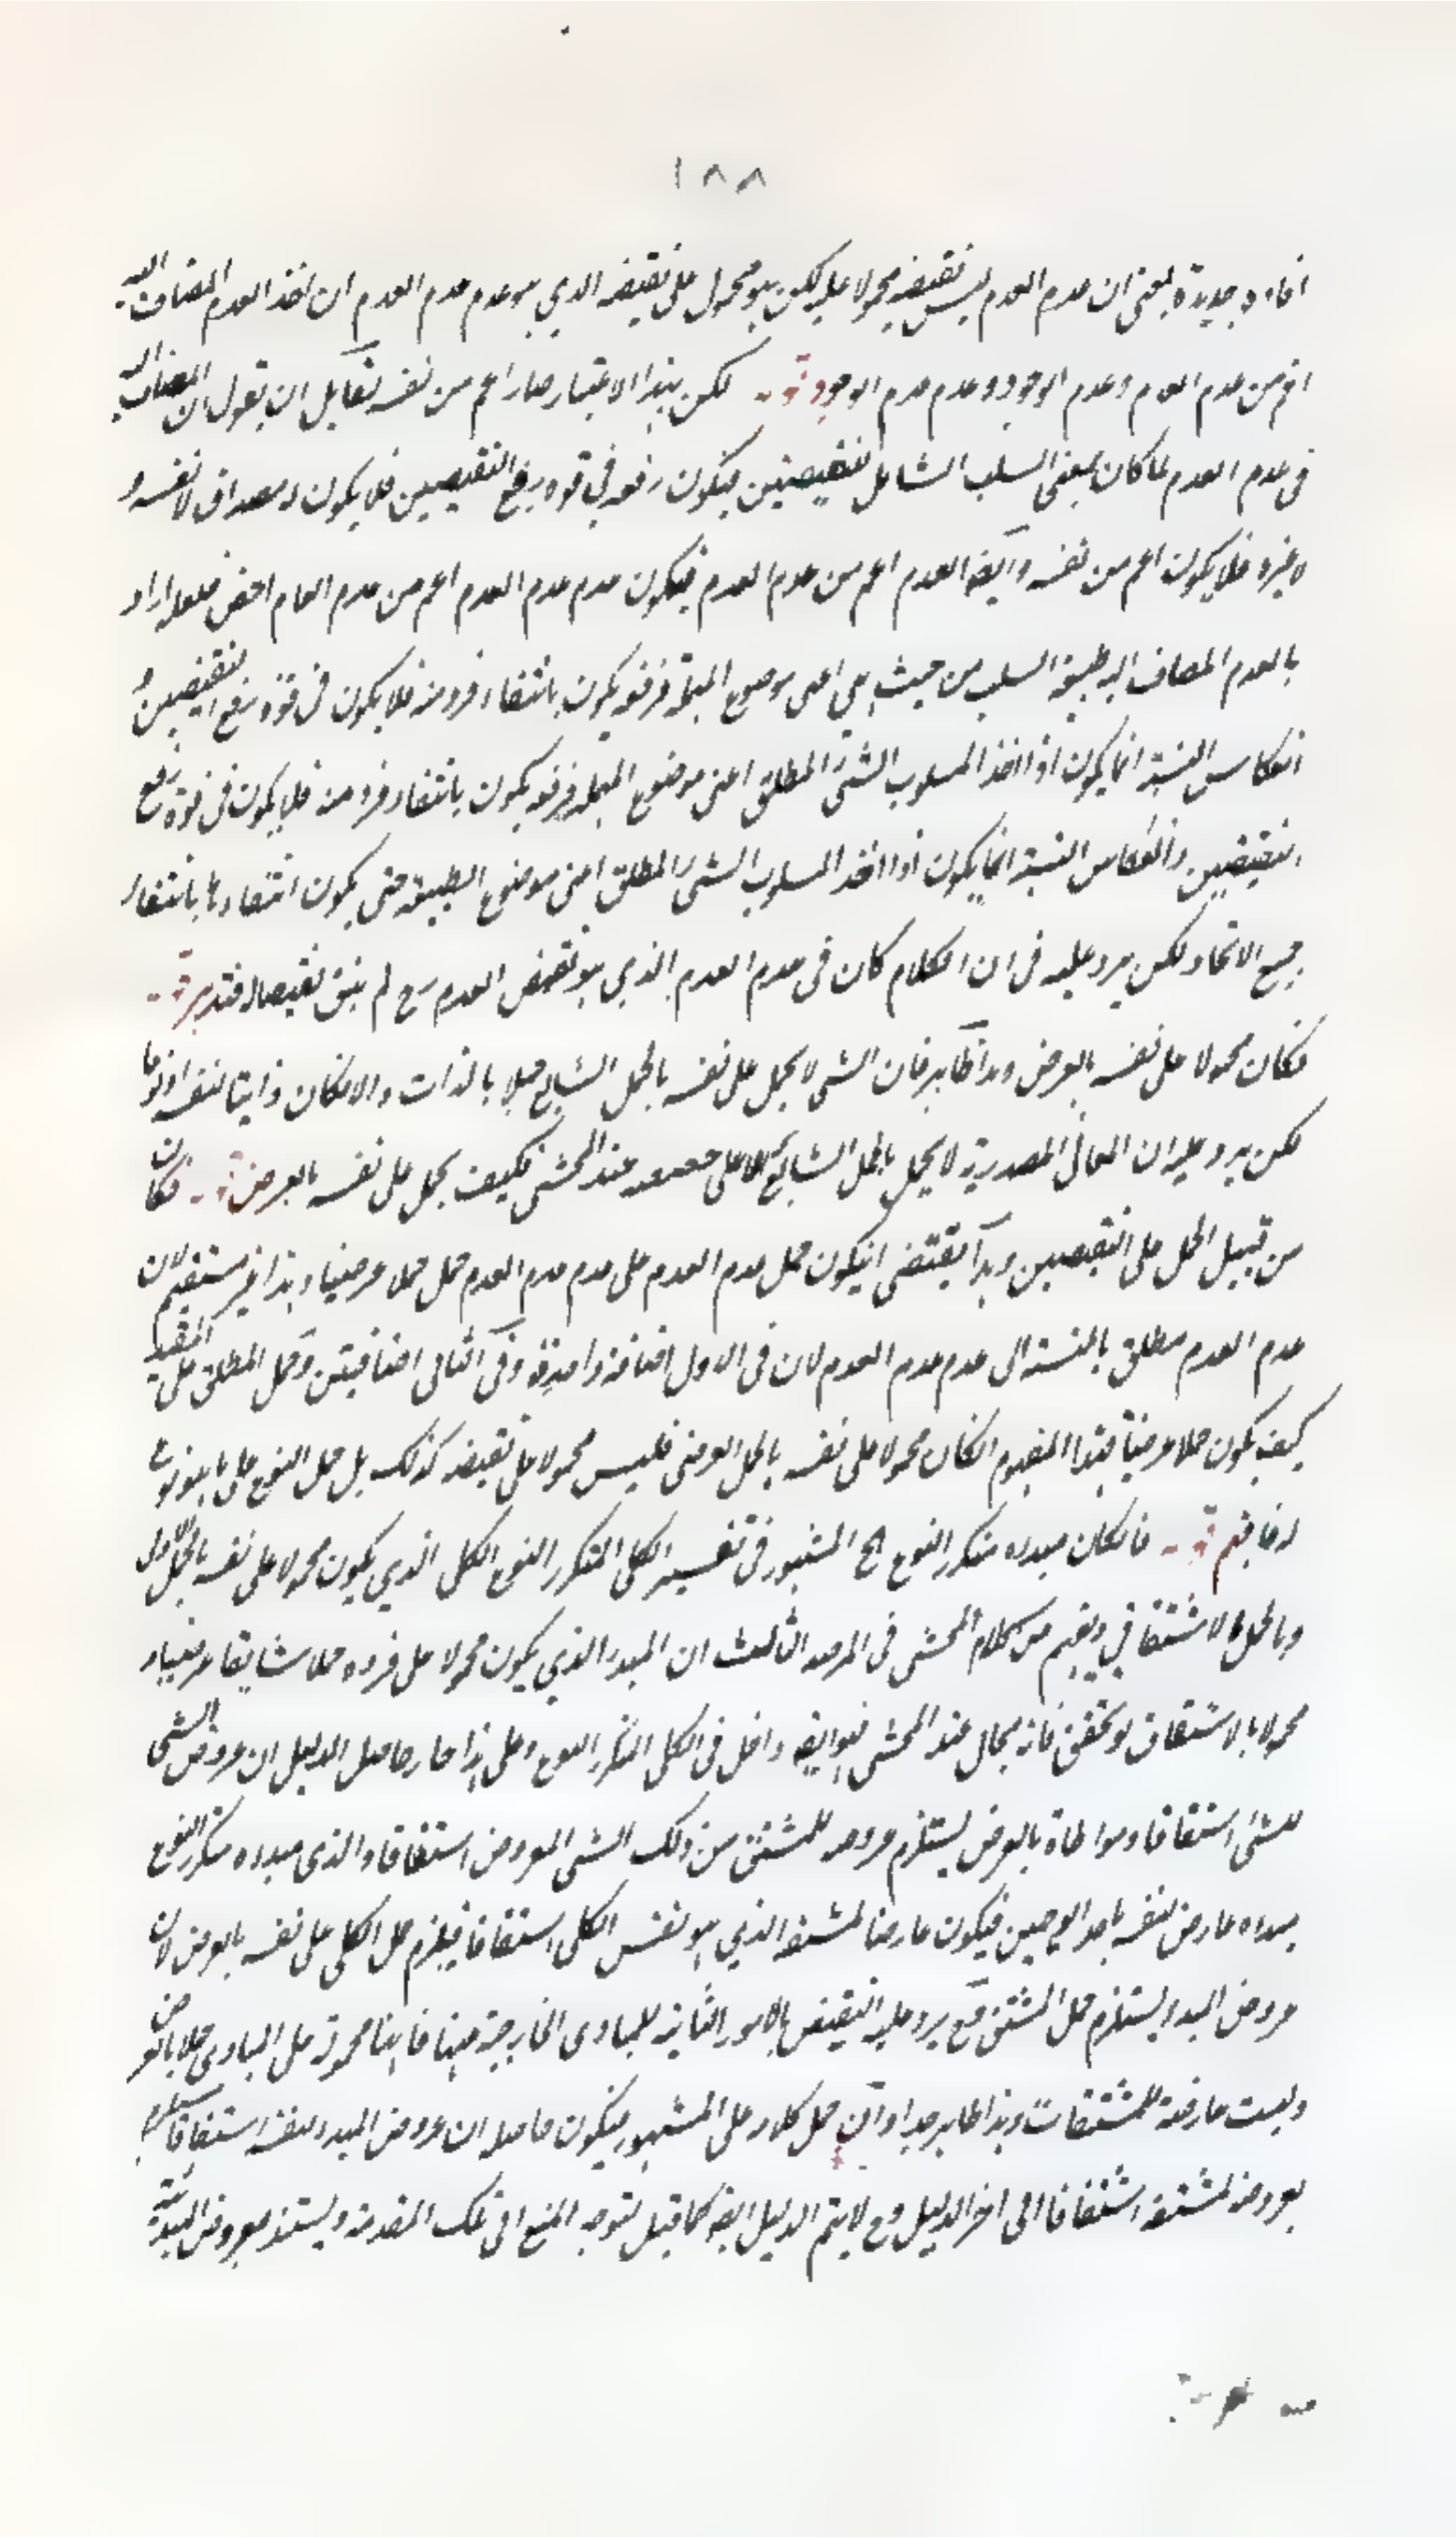 ١٨٨
بمعنى ان عدم العدم ليس نقيضه محمولا عليه لكن هو محمول على نقيضه الذي هو عدم عدم العدم ان اخذ العدم المضاف اليه
اعم من عدم العدم وعدم الوجود وعدم عدم الوجود قوله لكن بهذا الاعتبار صار اعم من نفسه لقايل ان يقول ان المضاف اليه
فى عدم العدم لما كان بمعنى السلب الشامل للنقيضين فيكون رفعه فى قوة رفع النقيضين فلا يكون له مصداق لا نفسه و
لا غيره فلا يكون اعم من نفسه وايضا العدم اعم من عدم العدم فيكون عدم عدم العدم اعم من عدم العام اخص فلعله اراد
بالعدم المضاف اليه طبيعة السلب من حيث هي اعنى موضوع المهملة فرفعه يكون بانتفاء فرد منه فلا يكون فى قوة رفع النقيضين و
انعكاس النسبة انما يكون اذا اخذ المسلوب الشئ المطلق اعنى موضوع المهملة فرفعه يكون بانتفاء فرد منه فلا يكون فى قوة رفع
النقيضين وانعكاس النسبة انما يكون اذا اخذ المسلوب الشئ المطلق اعنى موضوع الطبيعة حتى يكون انتفاءها بانتفاء
جميع لكن يرد عليه فى ان الكلام كان فى عدم العدم الذي هو نقيض العدم وح لم يبق نقيضا له فتدبر قوله
فكان محمولا على نفسه بالعرض وهذا ظاهر فان الشئ لا يحمل على نفسه بالحمل الشايع حملا بالذات والا لكان ذاتيا لنفسه
لكن يرد عليه ان المعانى المصدرية لا يحمل بالحمل الشايع الا على حصصه عند المحشى فكيف يحمل على نفسه بالعرض قوله فكان
من قبيل الحمل على النقيضين وهذا يقتضى ان يكون حمل عدم العدم على عدم عدم العدم حمل حملا عرضيا وهذا غير مستقيم لان
عدم العدم مطلق بالنسبة الى عدم عدم العدم لان فى الاول اضافة واحدة وفى الثانى اضافيتين وحمل المطلق على المقيد
كيف يكون حملا عرضيا فهذا المفهوم ان كان محمولا على نفسه بالحمل العرضى فليس محمولا على نقيضه كذلك بل حمل النوع على ما هو نوع
له فافهم قوله فان كان مبدءه متكرر النوع الخ المشهور فى تفسير الكلى المتكرر النوع الكلى الذي يكون محمولا على نفسه بالحمل الاولى
وبالحمل الاشتقاقي ويفهم من كلام المحشى فى المرصد الثالث ان المبدء الذي يكون محمولا على فرده حملا شايعا عرضيا
محمولا بالاشتقاق لو تحقق فانه محال عند المحشى فهو ايضا داخل فى الكلى المتكرر النوع وعلى هذا صار حاصل الدليل ان عروض الشئ
للشئ اشتقاقا ومواطاة بالعرض يستلزم عروضه للمشتق من ذلك الشئ المعروض اشتقاقا والذى مبدءه متكرر النوع
مبدءه عارض لنفسه باحد الوجهين فيكون عارضا لمشتقه الذي هو نفس الكلى اشتقاقا فيلزم حمل الكلى على نفسه بالعرض لان
عروض المبدء يستلزم حمل المشتق وح يرد عليه النقيض بالامور الثانية للمبادى الخارجية عنها فانها محمولة على المبادى حملا بالعرض
وليست عارضة للمشتقات وهذا ظاهر جدا وان حمل كلامه على المشهور فيكون حاصله ان عروض المبدء لنفسه اشتقاقا يستلزم
عروضه لمشتقه اشتقاقا الى اخر الدليل وح لا يتم الدليل ايضا كما قيل لتوجه المنع الى تلك المقدمة ويستند بعروض